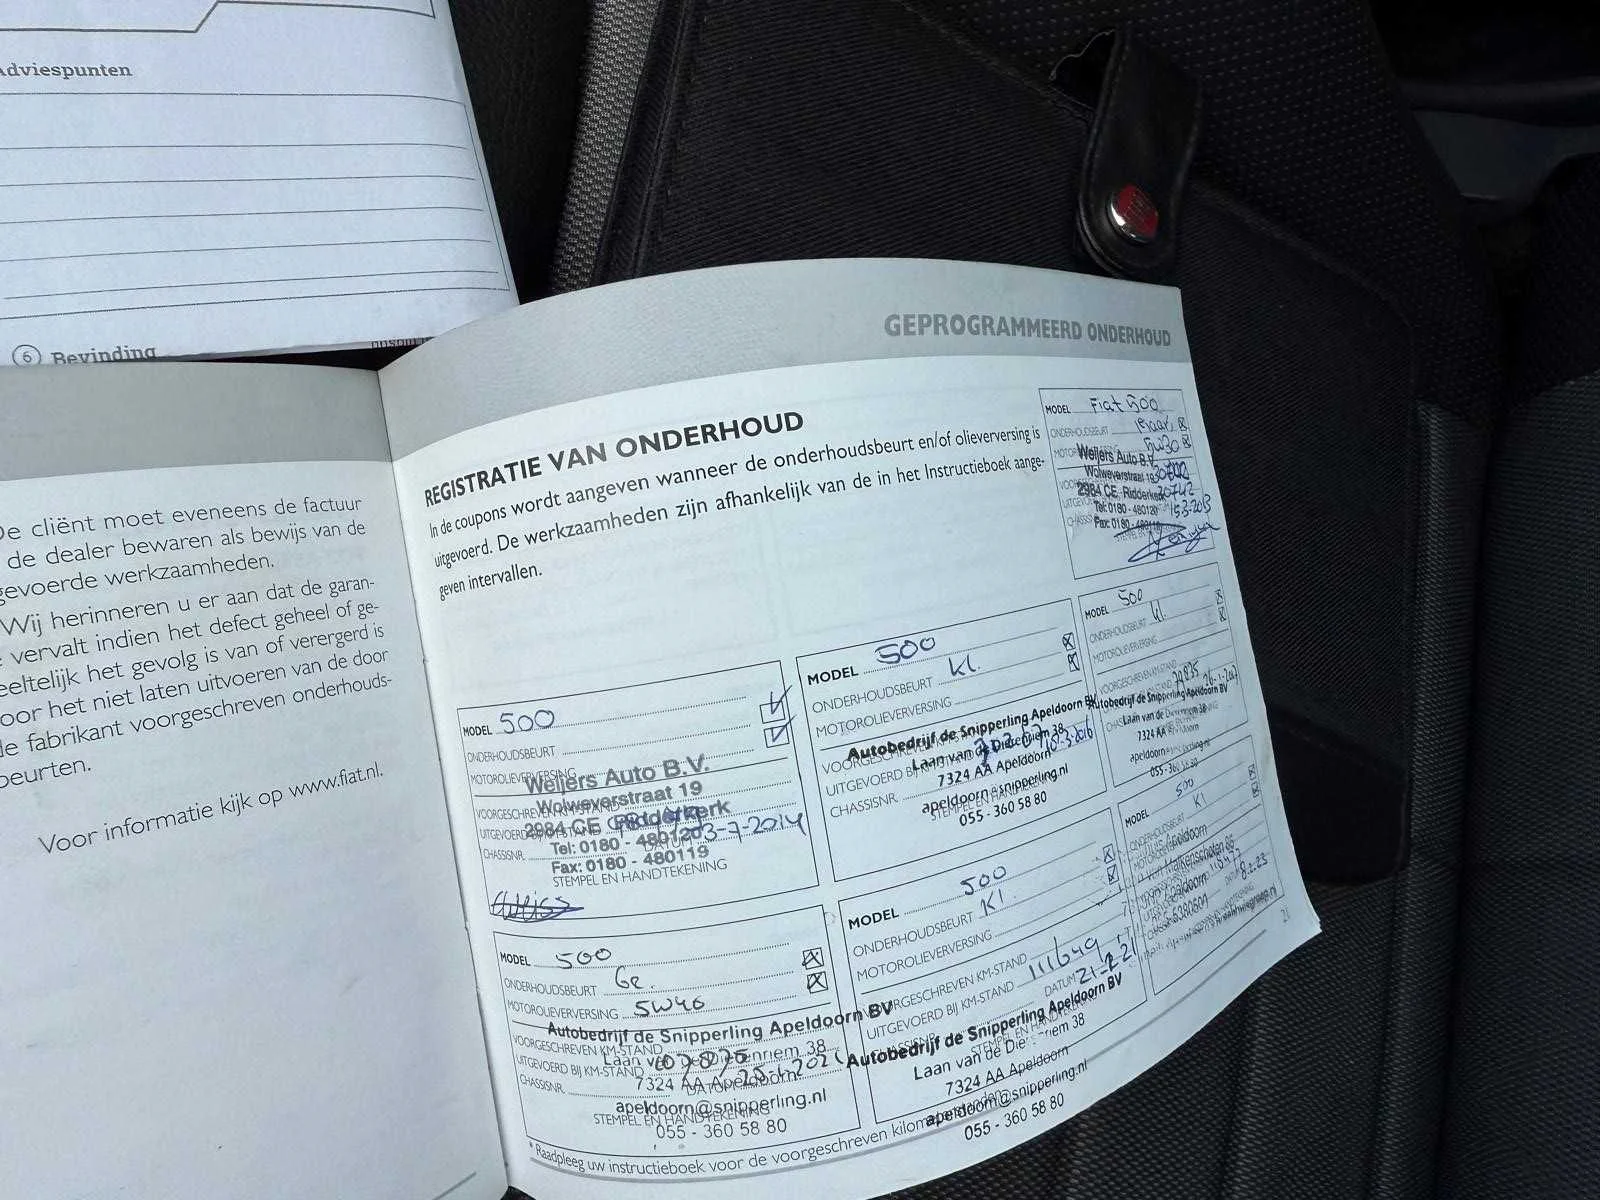 Adviespunten
6 Bevinding
De cliënt moet eveneens de factuur
de dealer bewaren als bewijs van de
gevoerde werkzaamheden.
Wij herinneren u er aan dat de garan-
vervalt indien het defect geheel of ge-
eeltelijk het gevolg is van of verergerd is
oor het niet laten uitvoeren van de door
de fabrikant voorgeschreven onderhouds-
beurten.
Voor informatie kijk op www.fiat.nl.
GEPROGRAMMEERD ONDERHOUD
REGISTRATIE VAN ONDERHOUD
In de coupons wordt aangeven wanneer de onderhoudsbeurt en/of olieverversing is
uitgevoerd. De werkzaamheden zijn afhankelijk van de in het Instructieboek aange-
geven intervallen.
MODEL Fiat 500
ONDERHOUDSBEURT
5W30
Weijers Auto B.V.
Wolweverstraat 19
2984 CE Ridderkerk
Tel: 0180 - 480120
15-3-2013
Fax: 0180 - 480119
MODEL 500
ONDERHOUDSBEURT
MOTOROLIEVERVERSING
Weijers Auto B.V.
VOORGESCHREVEN KM-STAND
Wolweverstraat 19
2984 CE Ridderkerk
UITGEVOERD BIJ KM-STAND
DATUM 03-7-2014
Tel: 0180 - 480120
CHASSISNR.
Fax: 0180 - 480119
STEMPEL EN HANDTEKENING
MODEL 500
ONDERHOUDSBEURT Kl.
MOTOROLIEVERVERSING
Autobedrijf de Snipperling Apeldoorn BV
VOORGESCHREVEN KM-STAND
Laan van de Dierenriem 38
UITGEVOERD BIJ KM-STAND
10-3-2016
7324 AA Apeldoorn
CHASSISNR.
apeldoorn@snipperling.nl
STEMPEL EN HANDTEKENING
055 - 360 58 80
MODEL 500
ONDERHOUDSBEURT Kl.
MOTOROLIEVERVERSING
VOORGESCHREVEN KM-STAND
26-1-2017
Autobedrijf de Snipperling Apeldoorn BV
Laan van de Dierenriem 38
7324 AA Apeldoorn
apeldoorn@snipperling.nl
055-360 58 80
MODEL 500
ONDERHOUDSBEURT Gr.
MOTOROLIEVERVERSING 5W40
Autobedrijf de Snipperling Apeldoorn BV
VOORGESCHREVEN KM-STAND
Laan van de Dierenriem 38
UITGEVOERD BIJ KM-STAND
7324 AA Apeldoorn
CHASSISNR.
apeldoorn@snipperling.nl
STEMPEL EN HANDTEKENING
055 - 360 58 80
MODEL 500
ONDERHOUDSBEURT Kl.
MOTOROLIEVERVERSING
VOORGESCHREVEN KM-STAND
UITGEVOERD BIJ KM-STAND 111649
DATUM 21-2-21
Autobedrijf de Snipperling Apeldoorn BV
Laan van de Dierenriem 38
7324 AA Apeldoorn
apeldoorn@snipperling.nl
055 - 360 58 80
MODEL 500
ONDERHOUDSBEURT Kl
Apeldoorn
Apeldoorn
8-2-23
* Raadpleeg uw instructieboek voor de voorgeschreven kilometerstanden